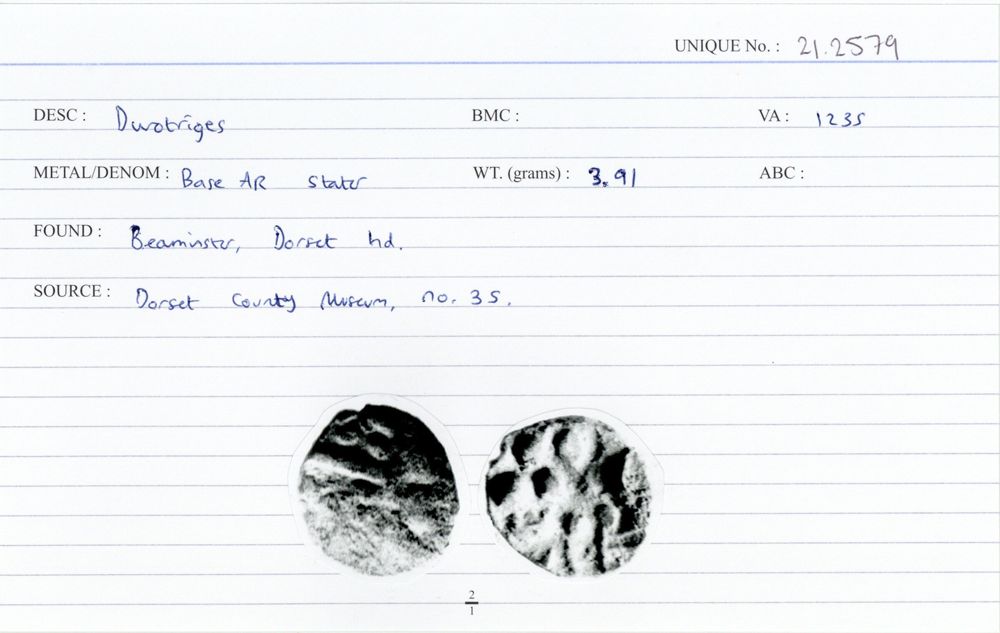 UNIQUE No. : 21.2579
DESC : Durotriges BMC : VA : 1235
METAL/DENOM : Base AR Stater WT. (grams) : 3.91 ABC :
FOUND : Beaminster, Dorset hd.
SOURCE : Dorset County Museum, no. 35.
2
1